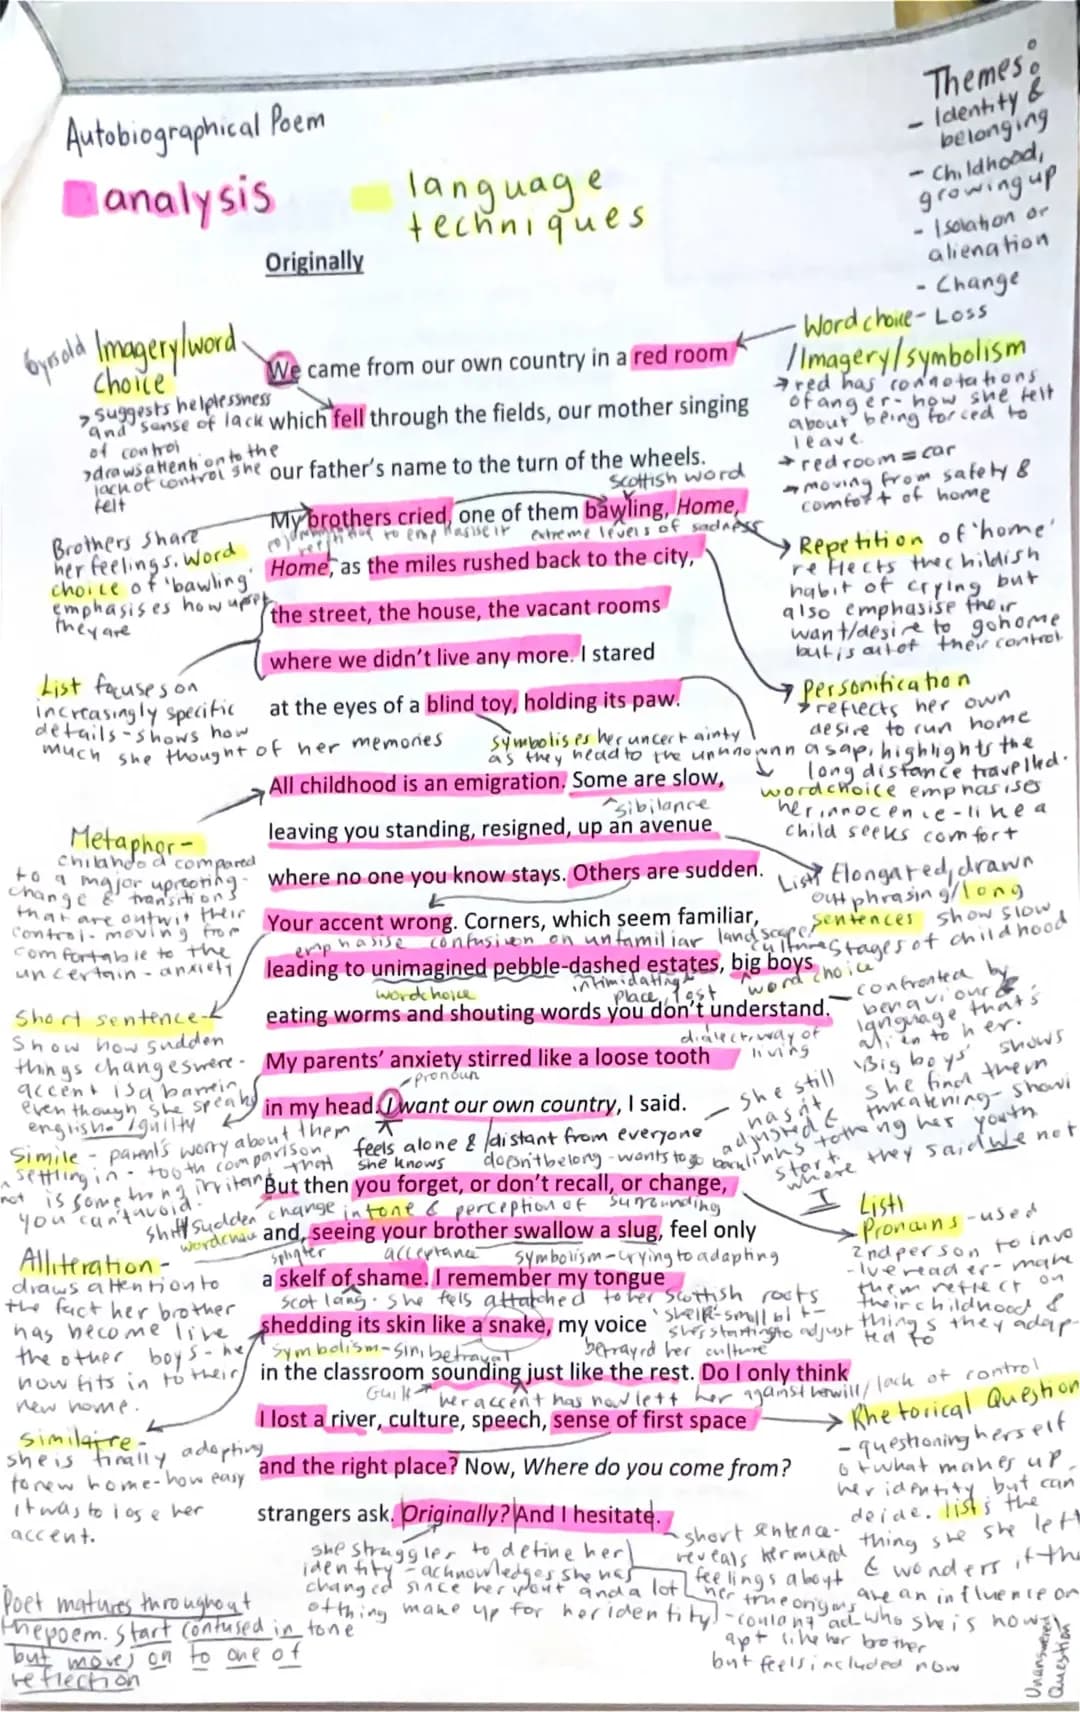 Autobiographical Poem
analysis
language
techniques
Themes:
- Identity &
belonging
- Childhood,
growing up
- Isolation or
alienation
- Change
Originally
6yrs old
Imagery/word
choice
> suggests helplessness
and sense of lack
of control
> draws attention to the
lack of control she
felt
Word choice - Loss
/Imagery/symbolism
→ red has connotations
of anger - how she felt
about being forced to
leave.
→ red room = car
→ moving from safety &
comfort of home
We came from our own country in a red room
which fell through the fields, our mother singing
our father's name to the turn of the wheels.
Scottish word
My brothers cried, one of them bawling, Home,
repetition to emphasise it
extreme levels of sadness
Home, as the miles rushed back to the city,
the street, the house, the vacant rooms
where we didn't live any more. I stared
at the eyes of a blind toy, holding its paw.
Brothers share
her feelings. Word
choice of 'bawling'
emphasises how upset
they are
List focuses on
increasingly specific
details - shows how
much she thought of her memories
Repetition of 'home'
reflects the childish
habit of crying but
also emphasise their
want/desire to go home
but is out of their control
Personification
> reflects her own
desire to run home
asap, highlights the
long distance travelled.
symbolises her uncertainty
as they head to the unknown
word choice emphasises
her innocence - like a
child seeks comfort
All childhood is an emigration. Some are slow,
sibilance
leaving you standing, resigned, up an avenue
where no one you know stays. Others are sudden.
Your accent wrong. Corners, which seem familiar,
emphasise confusion on unfamiliar landscape/
culture
leading to unimagined pebble-dashed estates, big boys
word choice
intimidating
place, lost
word choice
eating worms and shouting words you don't understand.
dialect, way of
living
My parents' anxiety stirred like a loose tooth
pronoun
in my head. I want our own country, I said.
feels alone & distant from everyone
she knows
doesn't belong - wants to go back
Metaphor -
childhood compared
to a major uprooting -
change & transitions
that are outwit their
control - moving from
comfortable to the
uncertain - anxiety
Short sentence
Show how sudden
things changes were -
accent is a barrier
even though she speaks
english
Simile - parents worry about them
settling in - tooth comparison
that
is something irritant
not
you can't avoid.
List Elongated, drawn
out phrasing/long
sentences show slow
stages of childhood
confronted by
behaviour &
language that's
alien to her.
'Big boys' shows
she find them
threatening - showi
ng her youth
she still
hasn't
adjusted &
links to
start
where they said We not
I
But then you forget, or don't recall, or change,
shift/sudden change in tone & perception of surrounding
word choice
and, seeing your brother swallow a slug, feel only
splinter
acceptance
symbolism - trying to adapting
a skelf of shame. I remember my tongue
scot lang. she fels attatched to her scottish roots
'skelf'-small bit -
she's starting to adjust
shedding its skin like a snake, my voice
symbolism - sin, betrayal
betrayed her culture
in the classroom sounding just like the rest. Do I only think
Guilt
her accent has now left her against her will/lack of control
I lost a river, culture, speech, sense of first space
and the right place? Now, Where do you come from?
strangers ask. Originally? And I hesitate.
Alliteration -
draws attention to
the fact her brother
has become like
the other boys - he
now fits in to their
new home.
she is finally adapting
to new home - how easy
it was to lose her
accent.
List
Pronouns - used
2nd person to invo
lve reader - make
them reflect on
their childhood &
things they adap-
ted to
Rhetorical Question
- questioning herself
of what makes up
her identity but can
List's the
thing she she left
& wonders if the
are an influence on
who she is now
Unanswered
Question
she struggles to define her
identity - acknowledges she has
changed since her youth and a lot
of thing make up for her identity
short sentence -
reveals her mixed
feelings about
her true origins
apt like her brother
but feels included now
Poet matures throughout
the poem. Start confused in tone
but moves on to one of
reflection